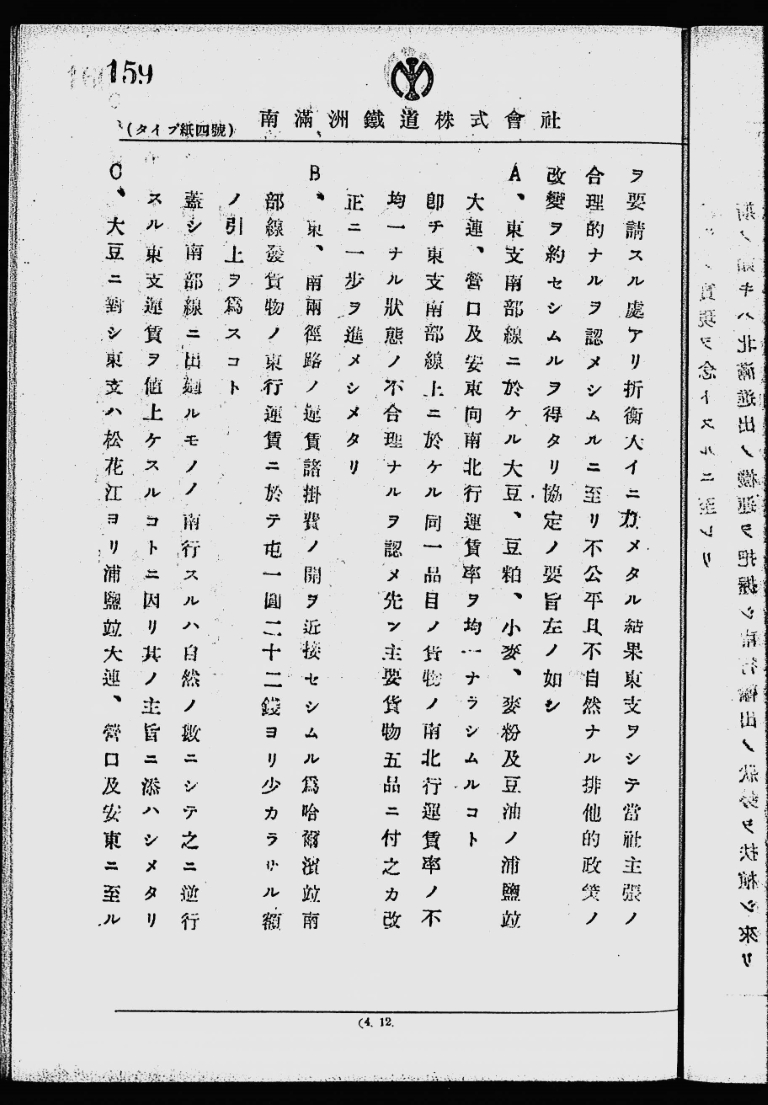 159
南滿洲鐵道株式會社
(タイプ紙四號)
ヲ要請スル處アリ折衝大イニ力メタル結果東支ヲシテ當社主張ノ
合理的ナルヲ認メシムルニ至リ不公平且不自然ナル排他的政策ノ
改變ヲ約セシムルヲ得タリ協定ノ要旨左ノ如シ
A、東支南部線ニ於ケル大豆、豆粕、小麥、麥粉及豆油ノ浦鹽竝
大連、營口及安東向南北行運賃率ヲ均一ナラシムルコト
卽チ東支南部線上ニ於ケル同一品目ノ貨物ノ南北行運賃率ノ不
均一ナル狀態ノ不合理ナルヲ認メ先ン主要貨物五品ニ付之カ改
正ニ一步ヲ進メシメタリ
B、東、南兩徑路ノ運賃諸掛費ノ開ヲ近接セシムル爲哈爾濱竝南
部線發貨物ノ東行運賃ニ於テ屯一圓二十二錢ヨリ少カラサル額
ノ引上ヲ爲スコト
蓋シ南部線ニ出廻ルモノノ南行スルハ自然ノ數ニシテ之ニ逆行
スル東支運賃ヲ値上ケスルコトニ因リ其ノ主旨ニ添ハシメタリ
C、大豆ニ對シ東支ハ松花江ヨリ浦鹽竝大連、營口及安東ニ至ル
(4. 12.
斯ノ如キハ北滿進出ノ機運ヲ把握シ南行輸出ノ狀勢ヲ扶植シ來リ
實現ヲ念トスルニ至レリ